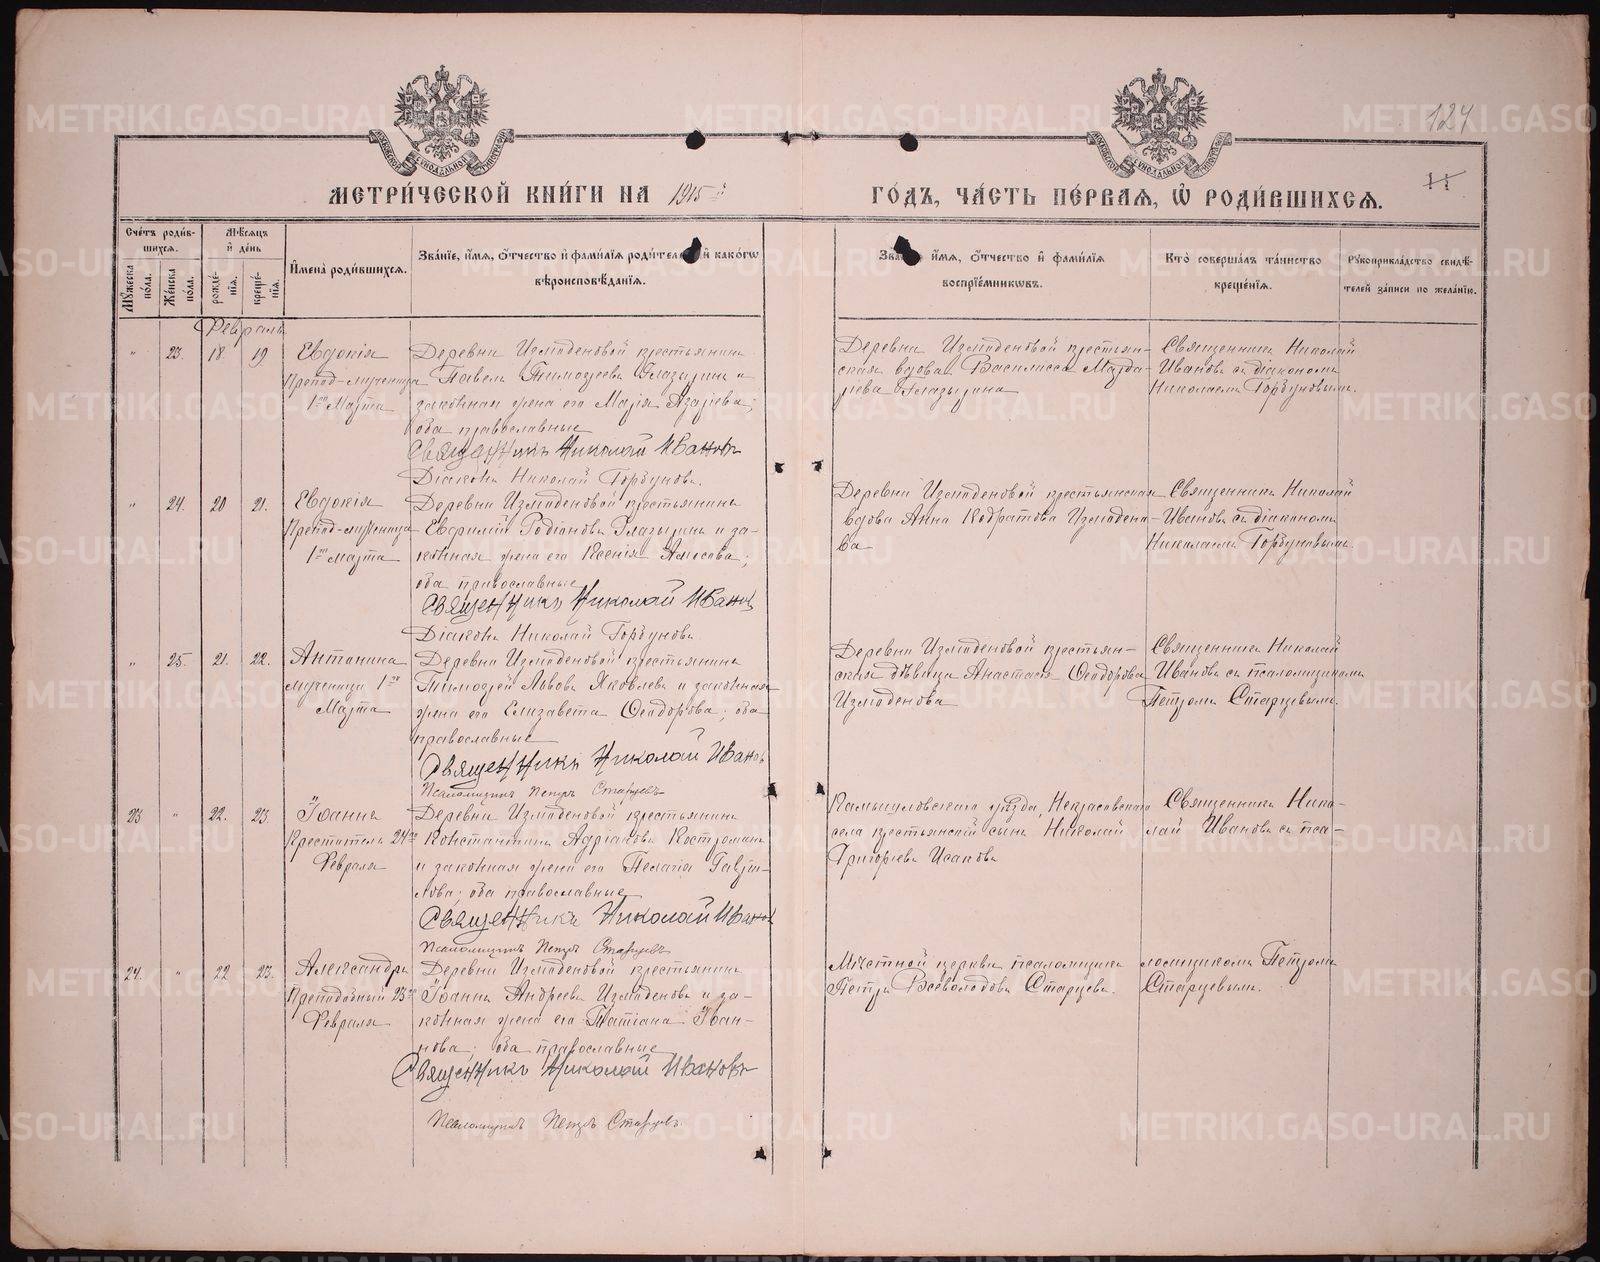 124
11
МЕТРИЧЕСКОЙ КНИГИ НА 1915й ГОДЪ, ЧАСТЬ ПЕРВАЯ, Ѡ РОДИВШИХСЯ.
Счетъ родившихся.
Мужеска пола.
Женска пола.
Мѣсяцъ и день
рожденія.
крещенія.
Имена родившихся.
Званіе, имя, отчество и фамилія родителей и какогѡ вѣроисповѣданія.
Званіе, имя, отчество и фамилія воспріемниковъ.
Кто совершалъ таинство крещенія.
Рукоприкладство свидѣтелей записи по желанію.
Февраль
" 23. 18 19
Евдокія
Препод-мученица
1го Марта
Деревни Измоденовой крестьянинъ
Павелъ Тимоѳеевъ Глазыринъ и
законная жена его Марія Азаріева;
оба православные
Священникъ Николай Ивановъ
Діаконъ Николай Горбуновъ.
Деревни Измоденовой крестьян-
ская вдова Василисса
Глазырина
Священникъ Николай
Ивановъ съ діакономъ
Николаемъ Горбуновымъ.
" 24. 20 21.
Евдокія
Препод-мученица
1го Марта
Деревни Измоденовой крестьянинъ
Евфимій Родіоновъ Глазыринъ и за-
конная жена его Ксенія Амосова;
оба православные
Священникъ Николай Ивановъ
Діаконъ Николай Горбуновъ.
Деревни Измоденовой крестьянская
вдова Анна Кодратова Измодено-
ва
Священникъ Николай
Ивановъ съ діакономъ
Николаемъ Горбуновымъ.
" 25. 21. 22.
Антонина
мученица 1го
Марта
Деревни Измоденовой крестьянинъ
Тимоѳей Львовъ Яковлевъ и законная
жена его Елизавета Ѳеодорова; оба
православные
Священникъ Николай Ивановъ
Псаломщикъ Петръ Старцевъ
Деревни Измоденовой крестьян-
ская дѣвица Анастасія Ѳеодорова
Измоденова
Священникъ Николай
Ивановъ съ псаломщикомъ
Петромъ Старцевымъ.
23 " 22. 23.
Іоаннъ
Креститель 24го
Февраля
Деревни Измоденовой крестьянинъ
Константинъ Адріановъ Костроминъ
и законная жена его Пелагія Гаврі-
лова; оба православные
Священникъ Николай Ивановъ
Псаломщикъ Петръ Старцевъ
Камышловскаго уѣзда, Некрасовскаго
села крестьянскій сынъ Николай
Григорьевъ Исаковъ
Священникъ Нико-
лай Ивановъ съ пса-
24. " 22 23.
Александръ
Преподобный 23го
Февраля
Деревни Измоденовой крестьянинъ
Іоаннъ Андреевъ Измоденовъ и за-
конная жена его Татіана Іоан-
нова; оба православные
Священникъ Николай Ивановъ
Псаломщикъ Петръ Старцевъ.
Мѣстной церкви псаломщикъ
Петръ Всеволодовъ Старцевъ.
ломщикомъ Петромъ
Старцевымъ.
METRIKI.GASO-URAL.RU